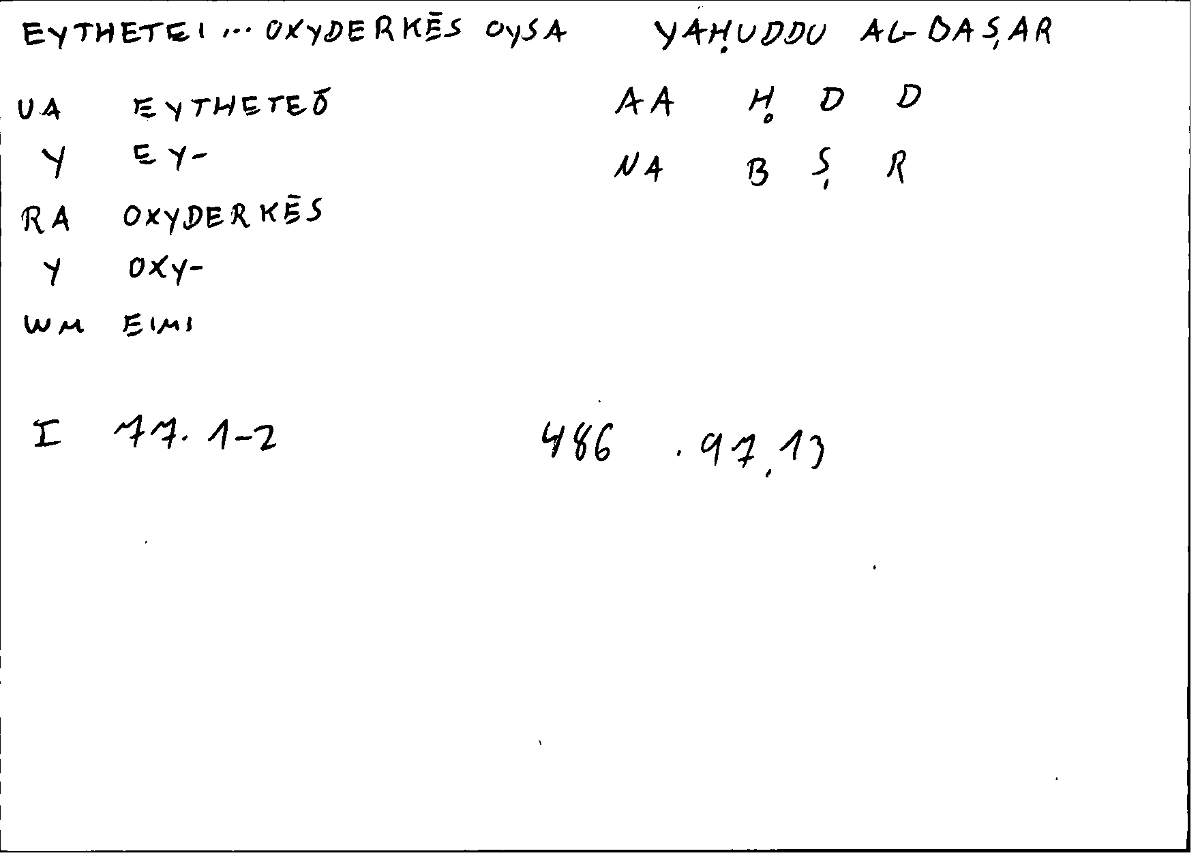 EYTHETEI ... OXYDERKĒS OYSA YAḤUDDU AL-BAṢAR
UA EYTHETEŌ AA Ḥ D D
Y EY- NA B Ṣ R
RA OXYDERKĒS
Y OXY-
WM EIMI
I 77. 1-2 486 . 97,13